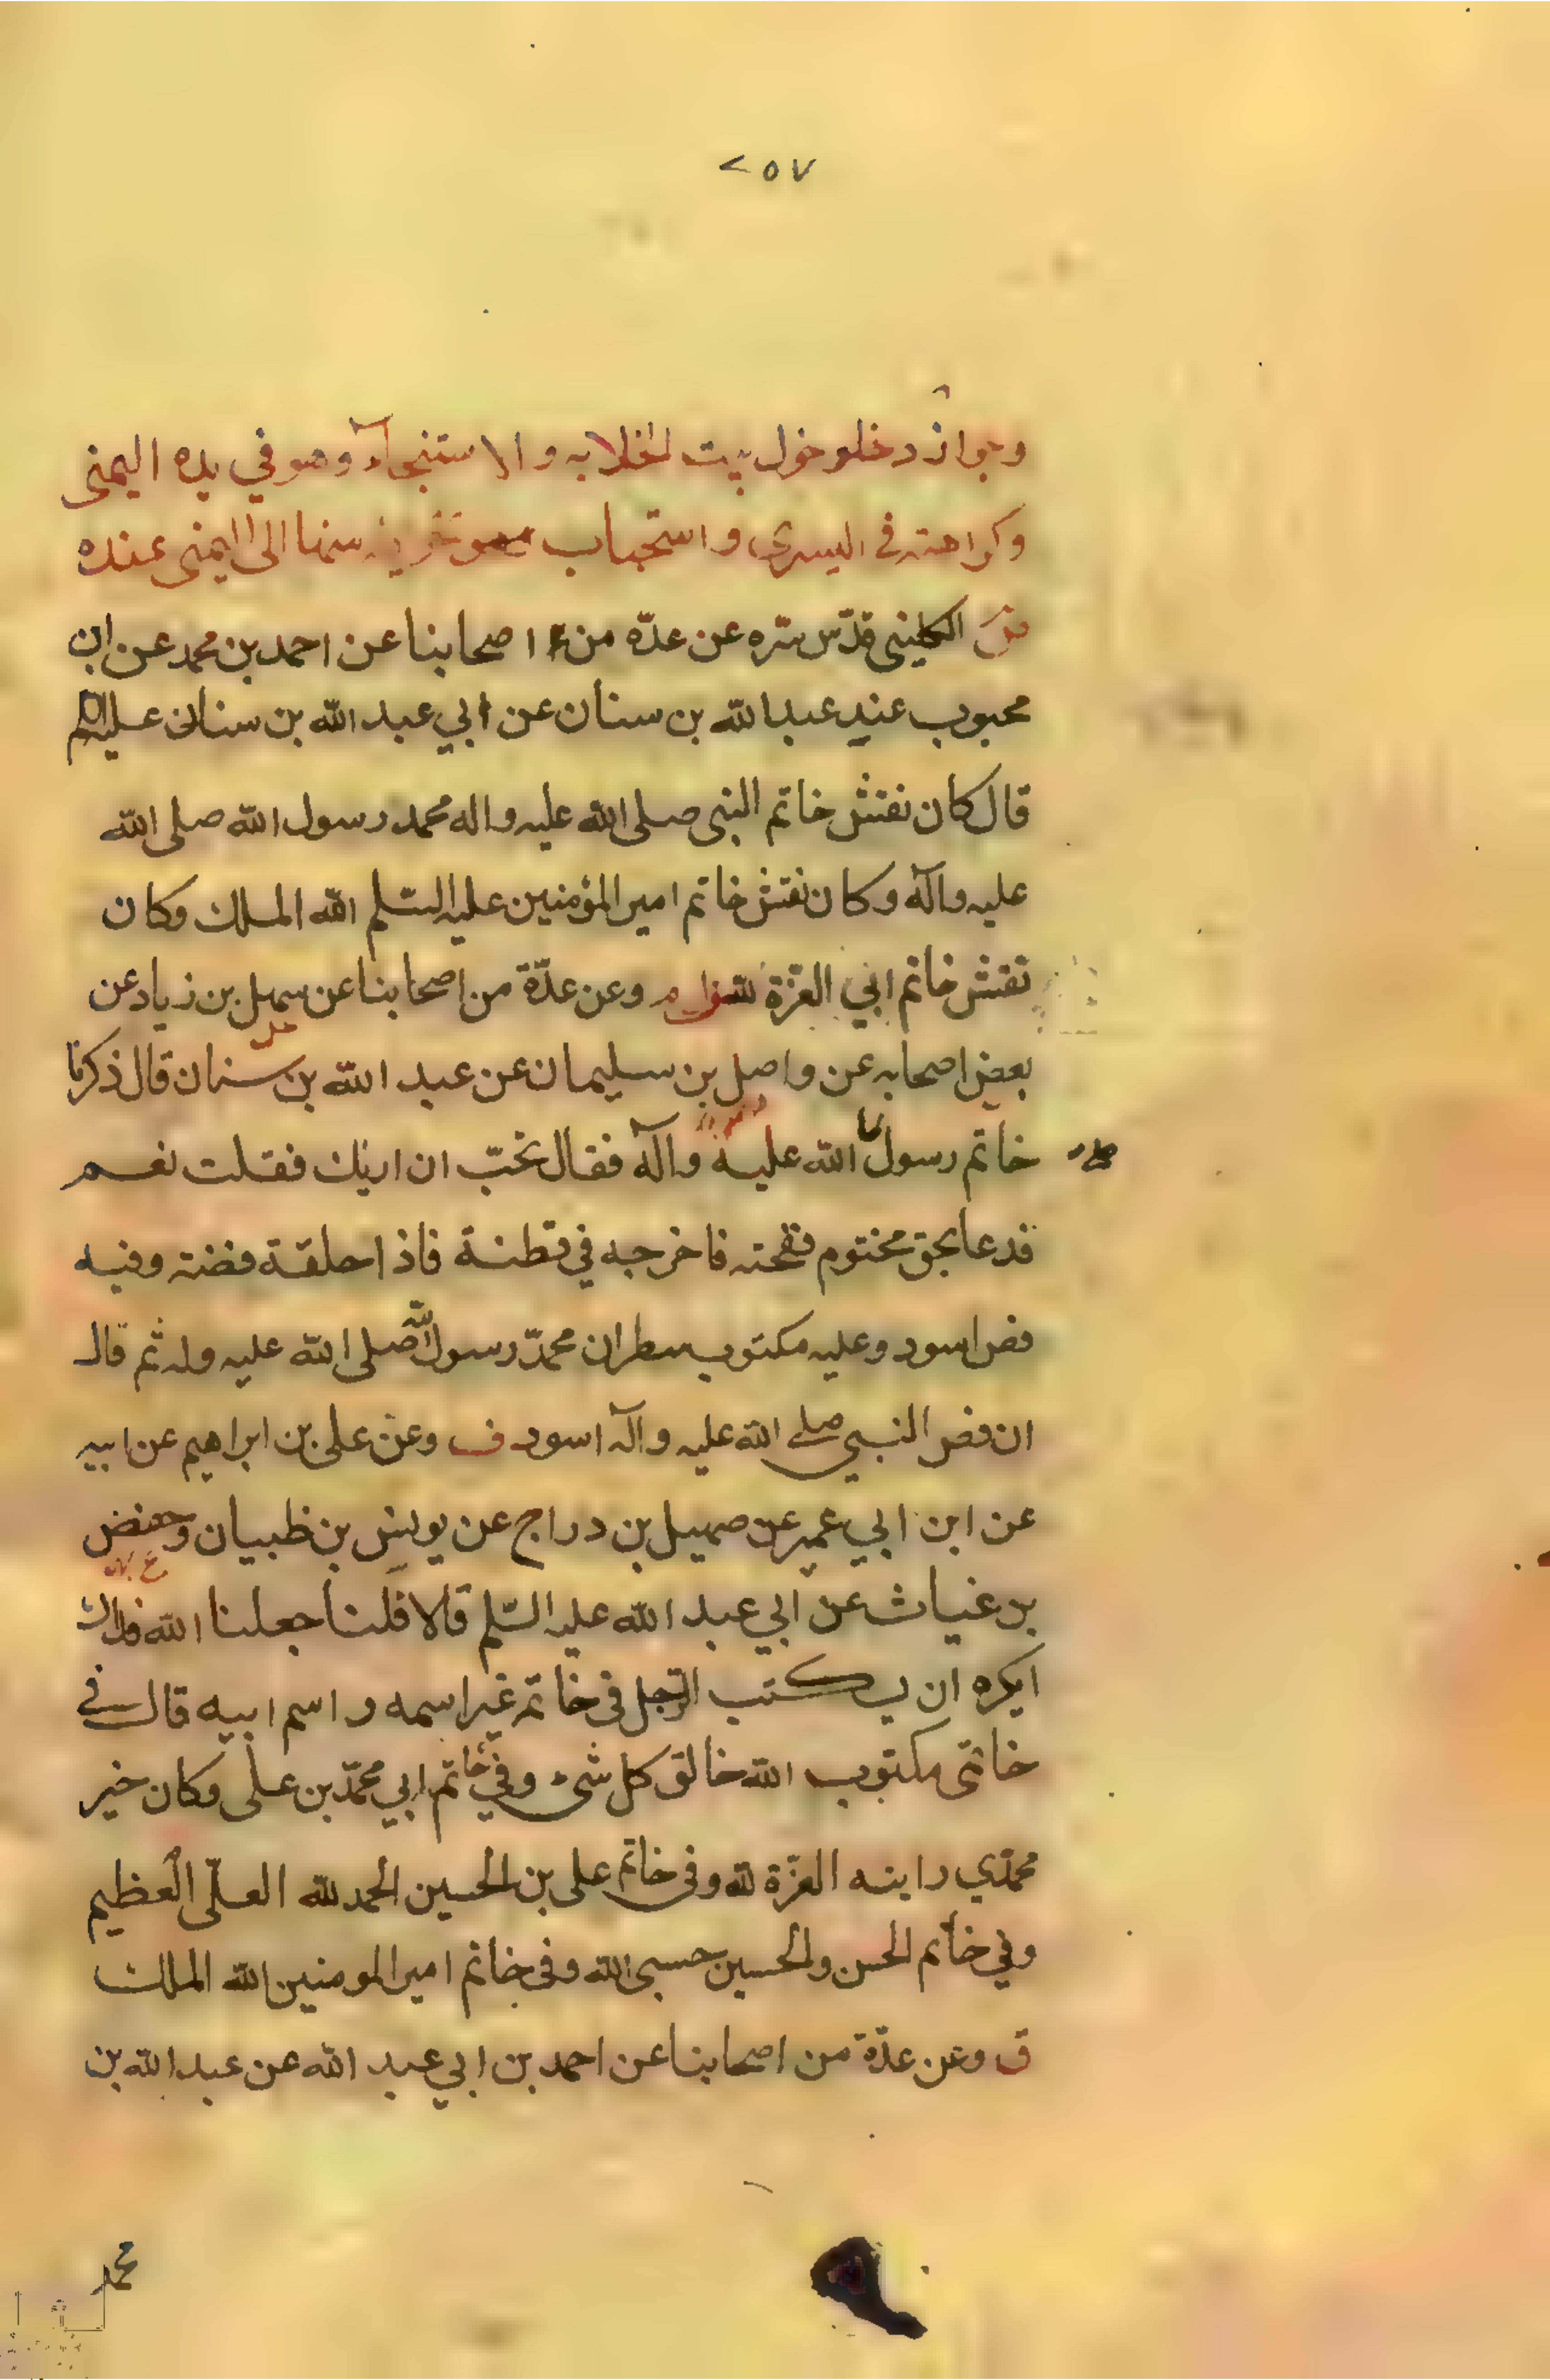 ٢٥٧
وجواز دخلو خول بيت الخلا به والاستنجآء وهو في يده اليمنى
وكراهته في اليسرى واستحباب منها الى اليمنى عنده
الكليني قدّس سّره عن عدّه من اصحابنا عن احمد بن محمد عن ابن
محبوب عبد الله بن سنان عن ابي عبد الله بن سنان
قال كان نقش خاتم النبى صلى الله عليه واله محمد رسول الله صلى الله
عليه وآله وكان نقش خاتم امير المؤمنين عليه السّلم الله الملك وكان
نقش خاتم ابي العزّة لله وعن عدّة من اصحابنا عن سهل بن زياد عن
بعض اصحابه عن واصل بن سليمان عن عبد الله بن سنان قال ذكرنا
خاتم رسول الله عليه وآله فقال تحبّ ان اريك فقلت نعم
فدعا بحق مختوم ففتحته فاخرجه في قطنة فاذا حلقة فضة وفيه
فص اسود وعليه مكتوب سطران محمّد رسول الله صلى الله عليه وله ثم قال
ان فص النبي صلى الله عليه وآله اسود ف وعن على بن ابراهيم عن ابيه
عن ابن ابي عمير عن جميل بن دراج عن يونس بن ظبيان وحفص
بن غياث عن ابي عبد الله عليه السّلم قالا قلنا جعلنا الله فداك
ايكره ان يكتب الرّجل فى خاتمه غير اسمه واسم ابيه قال في
خاتمى مكتوب الله خالق كل شىء وفي خاتم ابي محمّد بن على وكان خير
محمّدي رايته العزّة لله وفى خاتم على بن الحسين الحمد لله العلّى العظيم
وفي خاتم الحسن والحسين حسبى الله وفى خاتم امير المومنين الله الملك
ق وعن عدّة من اصحابنا عن احمد بن ابي عبد الله عن عبد الله بن
محمد